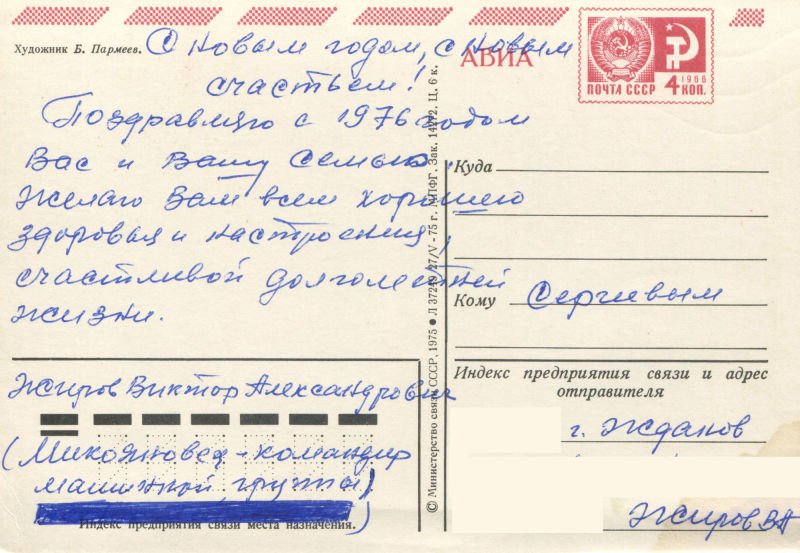 Художник Б. Пармеев.
С Новым годом, с новым
счастьем!
АВИА
1966
ПОЧТА СССР 4 КОП.
Поздравляю с 1976 годом
Вас и Вашу семью.
Желаю Вам всем хорошего
здоровья и настроения,
счастливой долголетней
жизни.
Жиров Виктор Александрович
(Микояновец - командир
машинной группы)
Индекс предприятия связи места назначения.
© Министерство связи СССР, 1975 ● Л 37249/27/V-75 г. МПФГ. Зак. 14292. Ц. 6 к.
Куда
Кому Сергиевым
Индекс предприятия связи и адрес
отправителя
г. Жданов
Жиров ВА